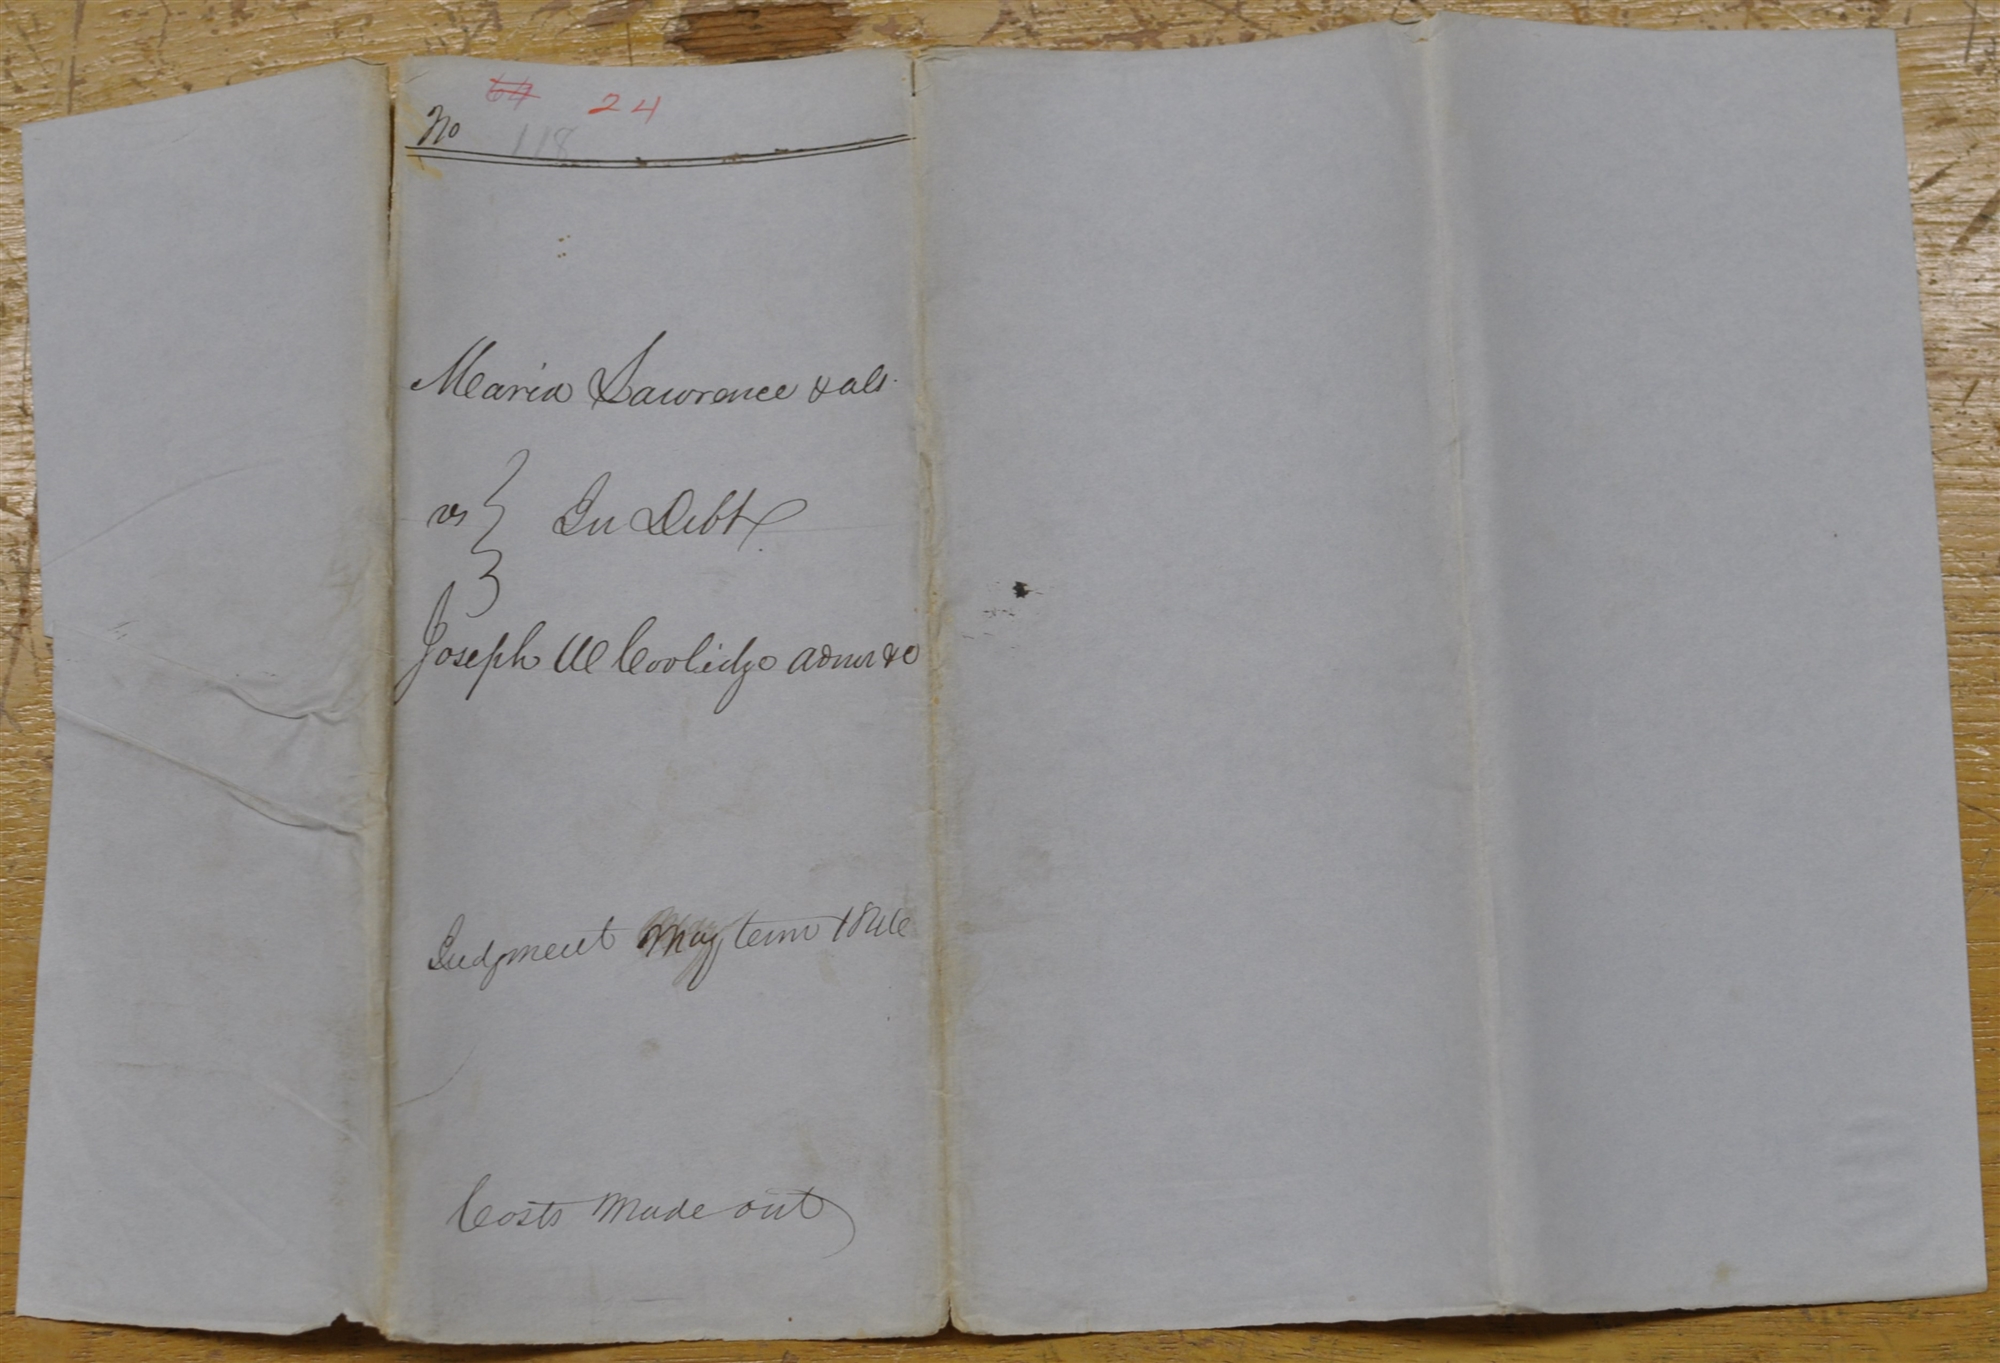 64 24
No 118
Maria Lawrence & als.
vs } In Debt
Joseph W Coolidge admr &c
Judgment May term 1846
Costs made out